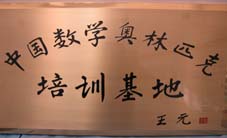 中国数学奥林匹克
培训基地
王元